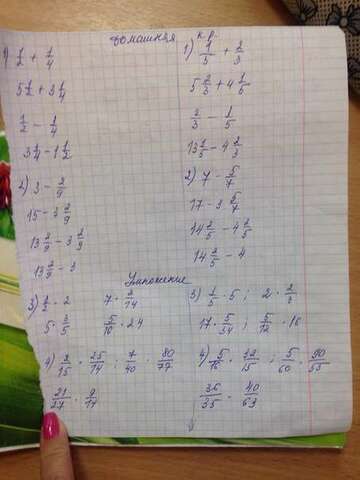 Домашняя к.р.
1) 1/2 + 1/4
5 1/2 + 3 1/4
1/2 - 1/4
3 1/4 - 1 1/2
2) 3 - 2/9
15 - 3 2/9
13 2/9 - 3 2/9
13 2/9 - 3
1) 1/5 + 2/3
5 2/3 + 4 1/5
2/3 - 1/5
13 1/5 - 4 2/3
2) 7 - 5/7
17 - 3 5/7
14 2/5 - 4 2/5
14 2/5 - 4
Умножение
3) 1/2 · 2 7 · 2/14
5 · 3/5 5/16 · 24
4) 2/15 · 25/14 ; 7/40 · 80/77
21/27 · 9/17
3) 1/5 · 5 ; 2 · 2/7
17 · 5/34 ; 5/12 · 16
4) 5/16 · 12/15 ; 5/60 · 90/55
36/35 · 40/63